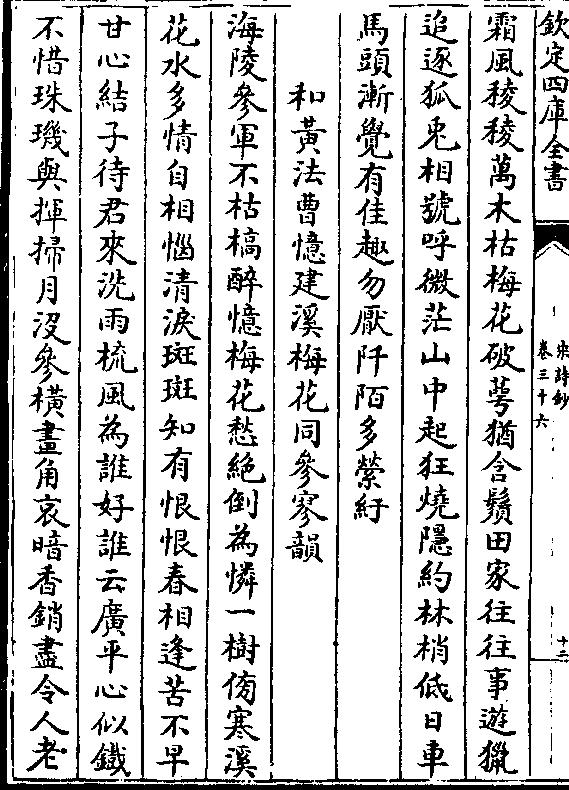 欽定四庫全書
宋詩鈔
卷三十六
十二
霜風稜稜萬木枯梅花破萼猶含鬚田家往往事遊獵
追逐狐兎相號呼微茫山中起狂燒隱約林梢低日車
馬頭漸覺有佳趣勿厭阡陌多縈紆
和黄法曹憶建溪梅花同參寥韻
海陵參軍不枯槁醉憶梅花愁絶倒為憐一樹傍寒溪
花水多情自相惱清淚斑斑知有恨恨春相逢苦不早
甘心結子待君來洗雨梳風為誰好誰云廣平心似鐵
不惜珠璣與揮掃月沒參橫畫角哀暗香銷盡令人老